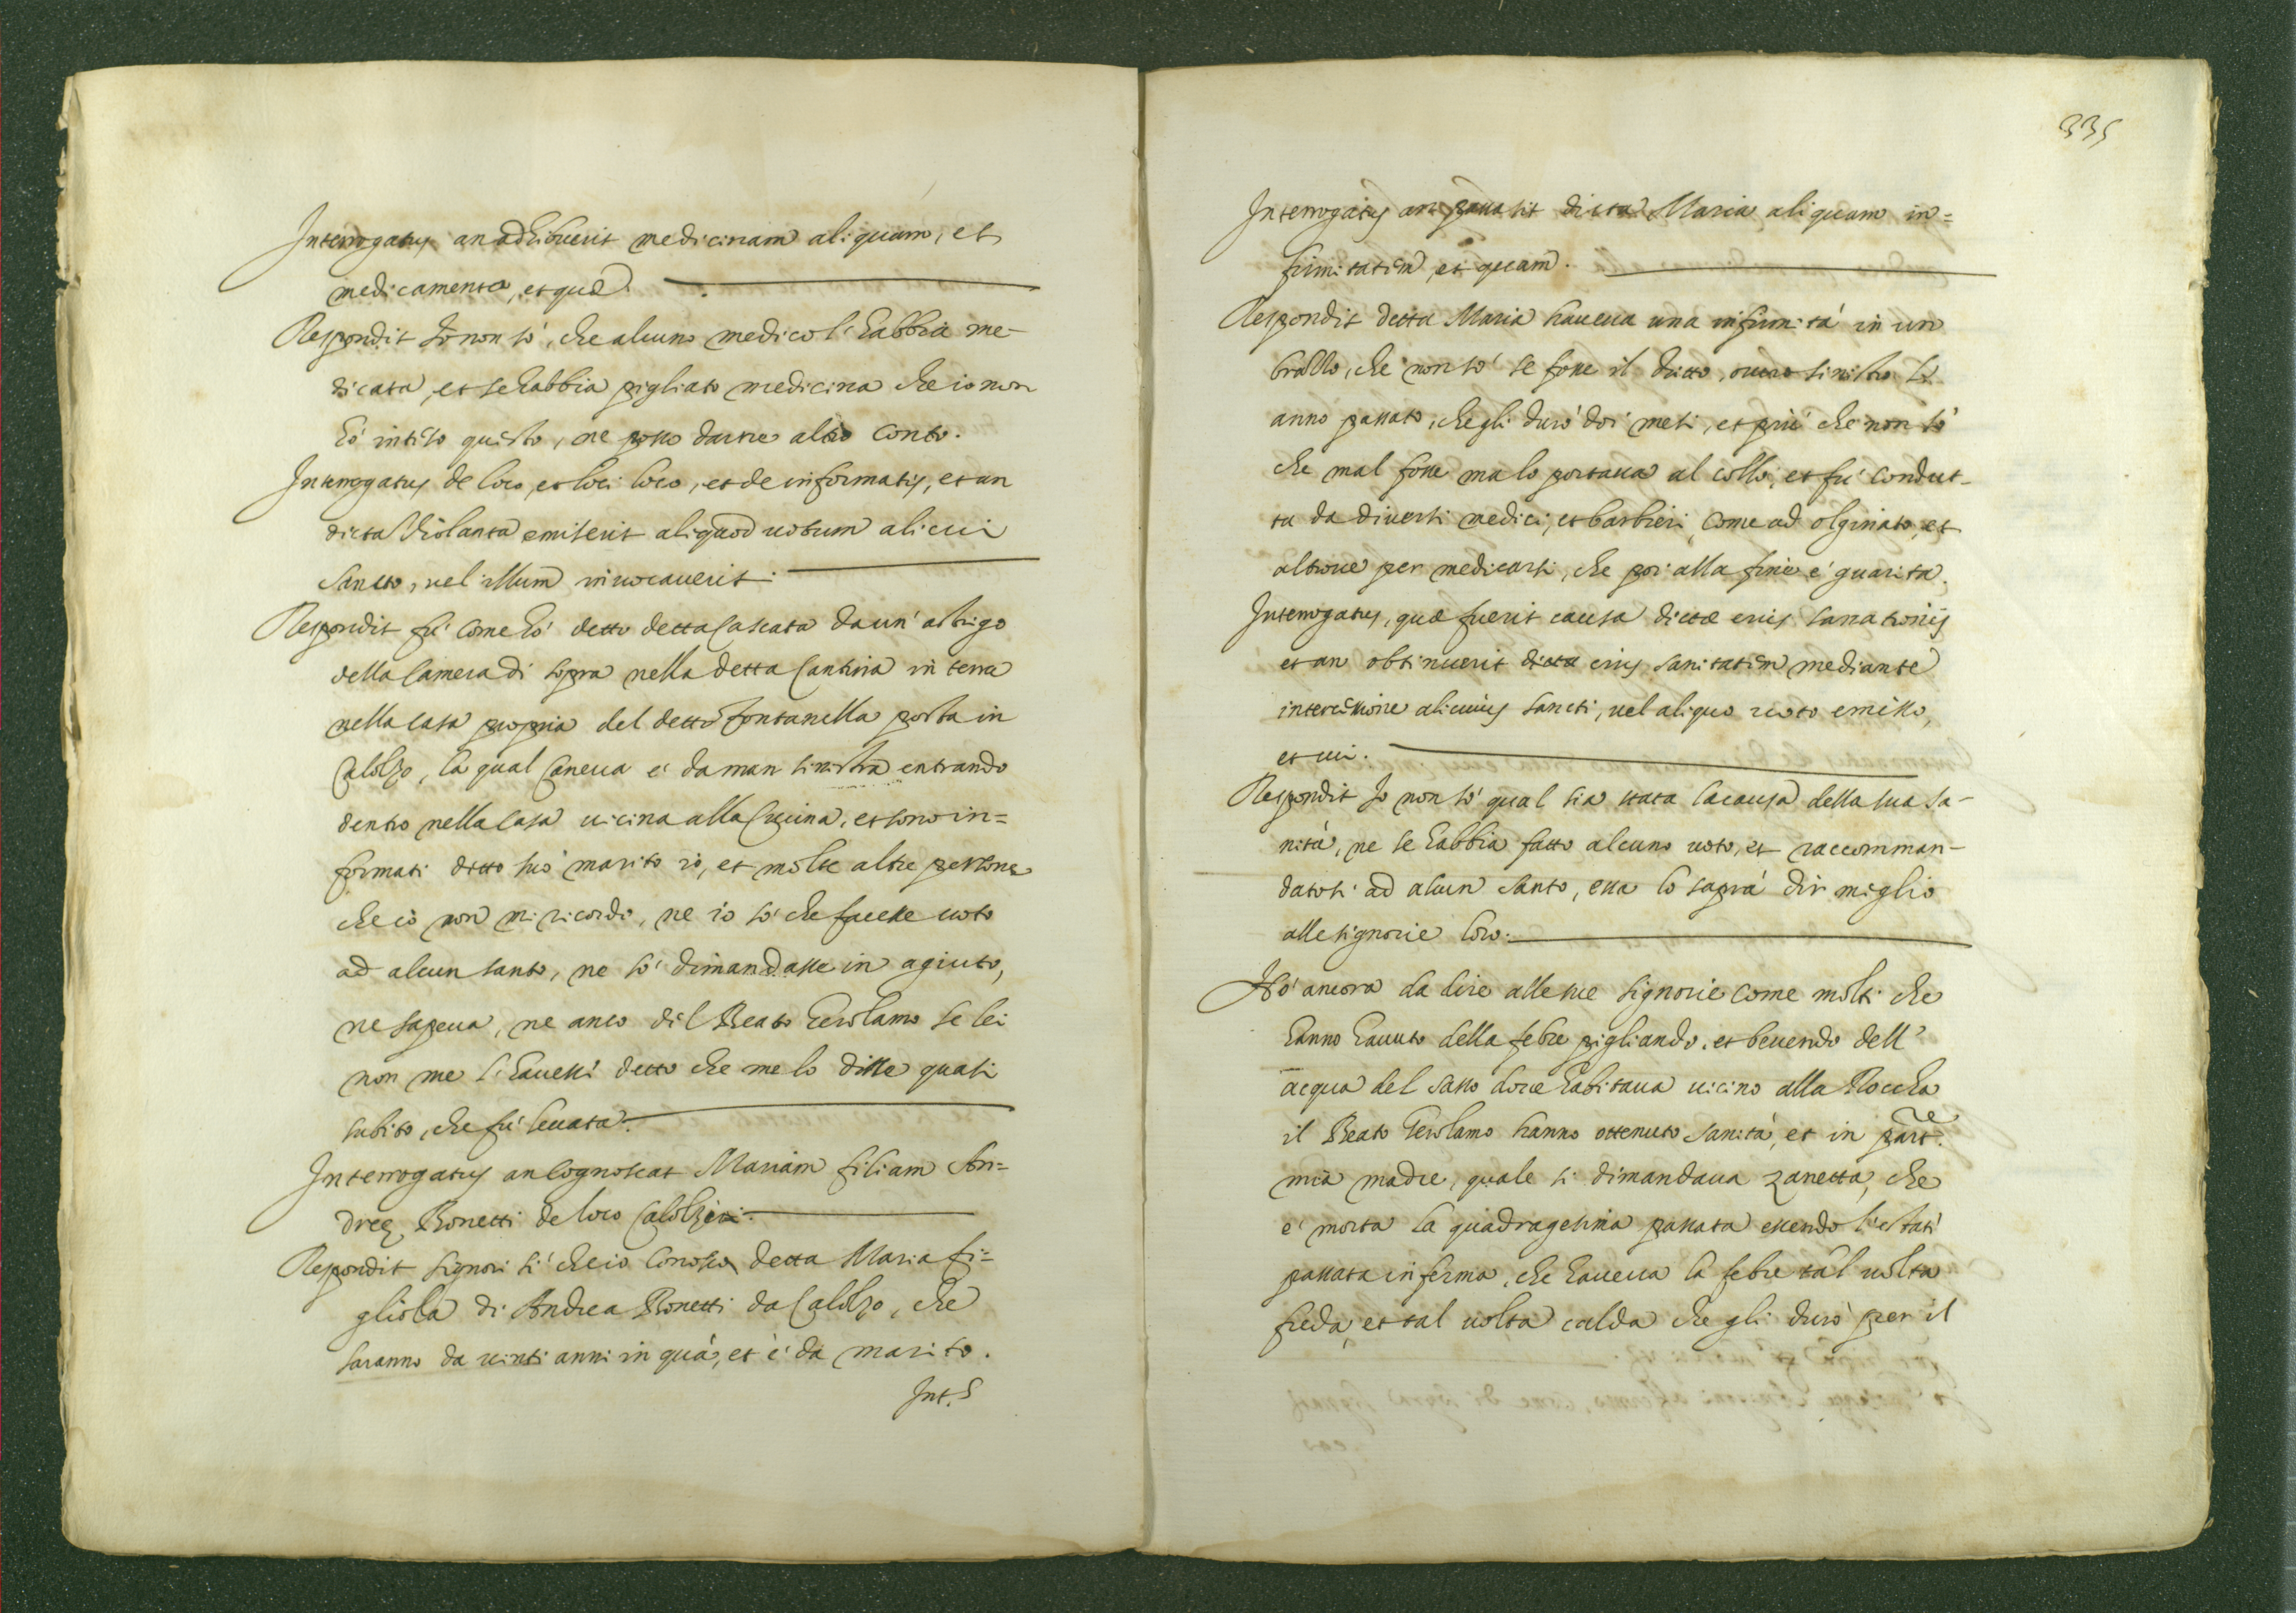 Interrogatus an adhibuerit medicinam aliquam, et
medicamenta, et quae.
Respondit Io non sò, che alcuno medico l'habbia me-
dicata, et se habbia pigliato medicina che io non
hò inteso questo, ne posso darne altro conto.
Interrogatus de loco, et loci loco, et de informatis, et an
dicta Violanta emiserit aliquod uotum alicui
Sancto, uel illum inuocauerit.
Respondit fù come hò detto detta Cascata da un'
della Camera di sopra nella detta Cantina in terra
nella casa propria del detto fontanella posta in
Calolzo, la qual Caneua è da man sinistra entrando
dentro nella Casa uicina alla Cucina, et sono in=
formati detto suo marito io, et molte altre persone
che io non mi ricordo, ne io sò che facesse uoto
ad alcun santo, ne sò dimandasse in agiuto,
ne sapeua, ne anco dil Beato Gerolamo se lei
non me l'hauessi detto che me lo disse quasi
subito, che fù leuata.
Interrogatus an cognoscat Mariam filiam An=
dreę Bonetti de loco
Respondit signori sì che io conosco detta Maria fi=
gliola di Andrea Bonetti da Calolzo, che
saranno da uinti anni in quà, et è da marito.
Int.s
335
Interrogatus an passa sit dicta Maria aliquam in=
firmitatem, et quam.
Respondit detta Maria haueua una infirmità in un
brazzo, che non sò se fosse il dritto, ouero sinistro L'
anno passato, che gli durò doi mesi, et più che non sò
che mal fosse ma lo portaua al collo, et fù condut-
ta da diuersi medici, et barbieri, come ad olginato, et
altroue per medicarsi, che poi alla fine è guarita.
Interrogatus, quae fuerit causa dictae eius sanationis
et an obtinuerit dicta eius sanitatem mediante
intercessione alicuius sancti, uel aliquo uoto emisso,
et cui.
Respondit Io non sò qual sia stata la causa della sua sa-
nità, ne se habbia fatto alcuno uoto, et raccomman-
datosi ad alcun santo, essa lo saprà dir meglio
alle signorie loro.
Hò ancora da dire alle sue signorie come molti che
hanno hauuto della febre pigliando, et beuendo dell'
acqua del sasso doue habitaua uicino alla Roccha
il Beato Gerolamo hanno ottenuto sanità, et in part.re
mia madre, quale si dimandaua Zanetta, che
è morta la quadragesima passata essendo l'estati
passata inferma, che haueua la febre tal uolta
freda, et tal uolta calda che gli durò per il